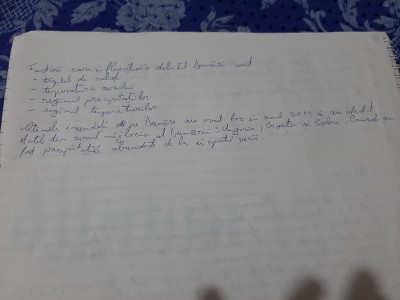 Factorii care influențează debitul Dunării sunt
- treptele de relief
- temperatura aerului
- regimul precipitațiilor
- regimul temperaturilor
Ultimele inundații de pe Dunăre au avut loc în anul și au afectat
statele din cursul mijlociu al Dunării: Ungaria, Croația și Serbia. Cauzele au
fost precipitațiile abundente de la începutul verii.